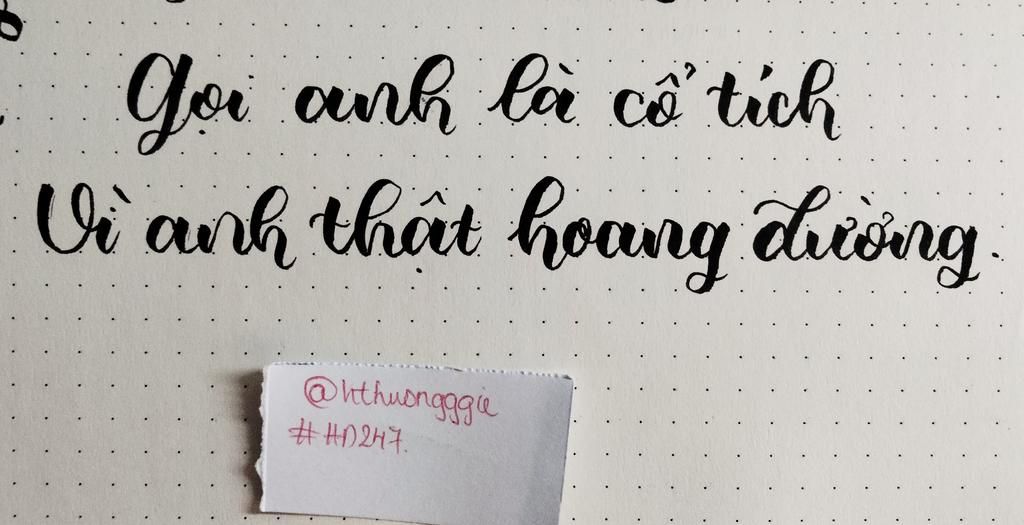 Gọi anh là cổ tích
Vì anh thật hoang đường.
@hthuongggie
#HD247.